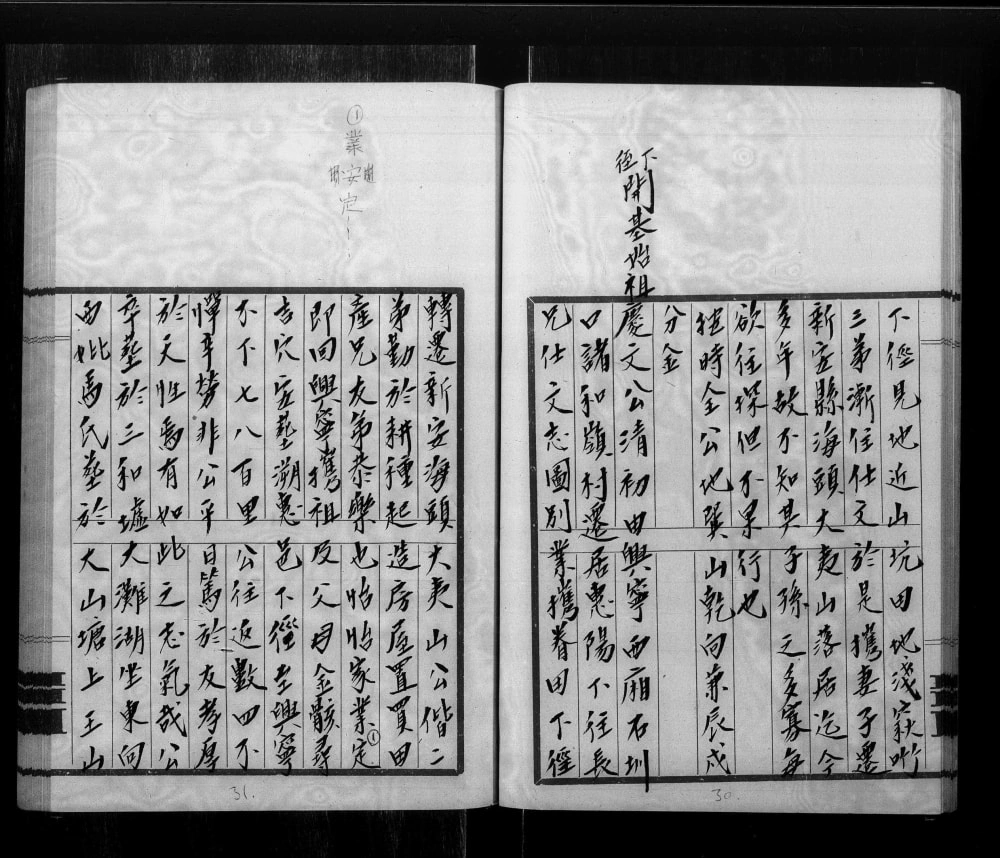 下徑見地近山坑田地淺窄
三弟漸往仕文於是攜妻子遷
新安縣海頭大夷山落居迄今
多年故不知其子孫之多寡每
欲往探但不果行也
獨時全公地巽山乾向兼辰戌
分金
下徑開基始祖慶文公清初由興寧西廂石圳
口諸和嶺村遷居惠陽下徑長
兄仕文志圖別業攜眷由下徑
30.
①業安定
轉遷新安海頭大夷山公偕二
弟勤於耕種起造房屋置買田
產兄友弟恭樂也怡怡家業定①
即回興寧攜祖及父母金骸尋
吉穴安葬溯惠邑下徑至興寧
不下七八百里公往返數四不
憚辛勞非公平日篤於友孝厚
於天性焉有如此之志氣哉公
卒葬於三和墟大灘湖坐東向
西妣馬氏葬於大山塘上王山
31.